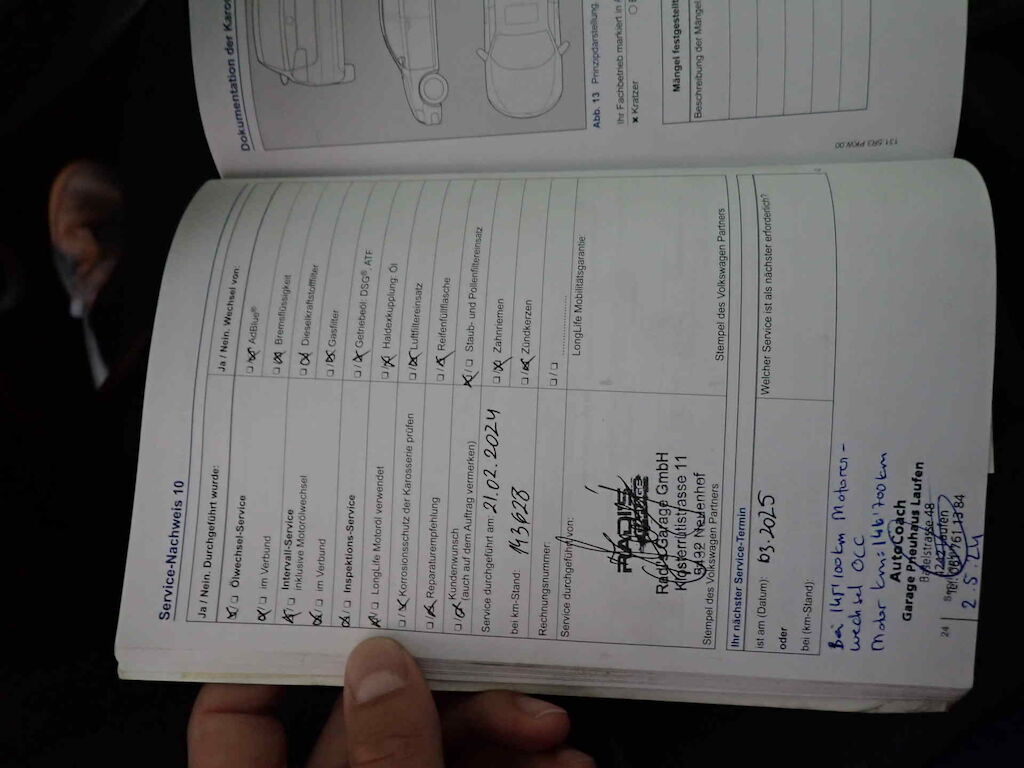 Service-Nachweis 10
Ja / Nein. Durchgeführt wurde:
Ölwechsel-Service
im Verbund
Intervall-Service
inklusive Motorölwechsel
im Verbund
Inspektions-Service
LongLife Motoröl verwendet
Korrosionsschutz der Karosserie prüfen
Reparaturempfehlung
Kundenwunsch
(auch auf dem Auftrag vermerken)
Service durchgeführt am: 21.02.2024
bei km-Stand: 143628
Rechnungsnummer:
Service durchgeführt von:
Radi's Garage GmbH
Klosterrütistrasse 11
5432 Neuenhof
Stempel des Volkswagen Partners
Ja / Nein. Wechsel von:
AdBlue®
Bremsflüssigkeit
Dieselkraftstofffilter
Gasfilter
Getriebeöl: DSG®, ATF
Haldexkupplung: Öl
Luftfiltereinsatz
Reifenfüllflasche
Staub- und Pollenfiltereinsatz
Zahnriemen
Zündkerzen
LongLife Mobilitätsgarantie
Stempel des Volkswagen Partners
Ihr nächster Service-Termin
ist am (Datum): 03.2025
oder
bei (km-Stand):
Welcher Service ist als nächster erforderlich?
Bei 147'100km Motoren-
wechsel OCC
Motor km: 146'700km
AutoCoach
Garage Pneuhaus Laufen
4242 Laufen
2.5.24
24
Dokumentation der
Abb. 13 Prinzipdarstellung.
Ihr Fachbetrieb markiert in
× Kratzer
Mängel festgestellt
Beschreibung der Mängel
131.5R3.PKW.00